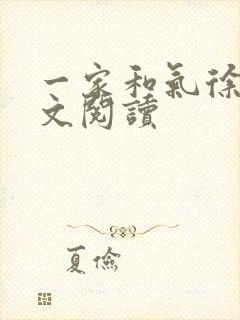 一家和氣徐
文閱讀
夏儉